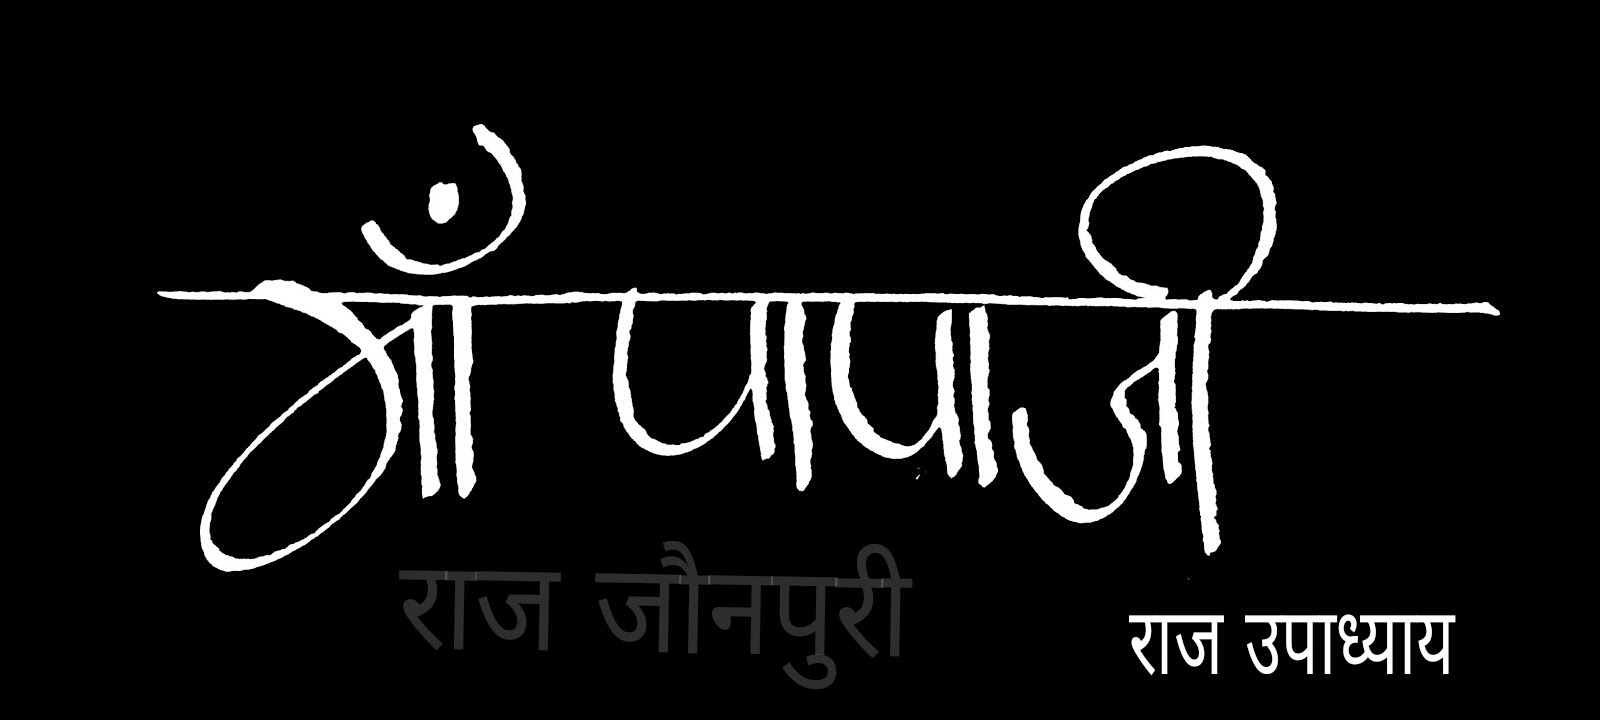 माँ पापाजी
राज जौनपुरी
राज उपाध्याय